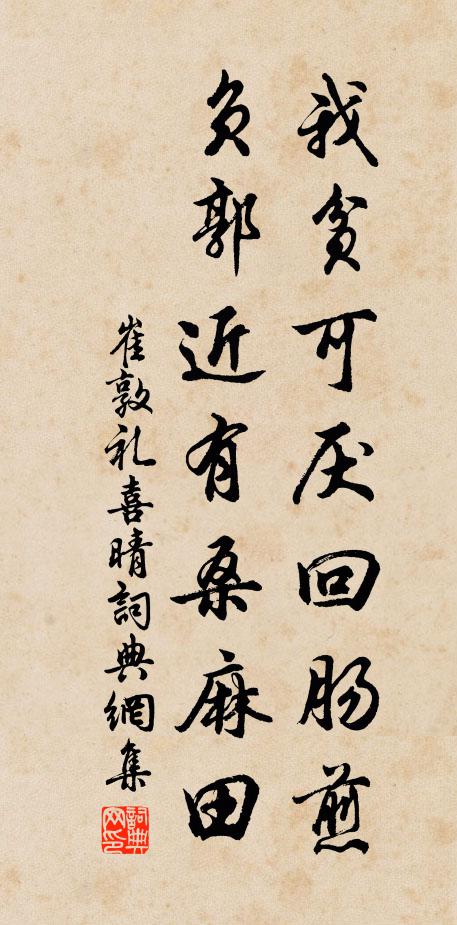 我贫可厌回肠煎
负郭近有桑麻田
崔敦礼喜晴詞典網集
詞典网印